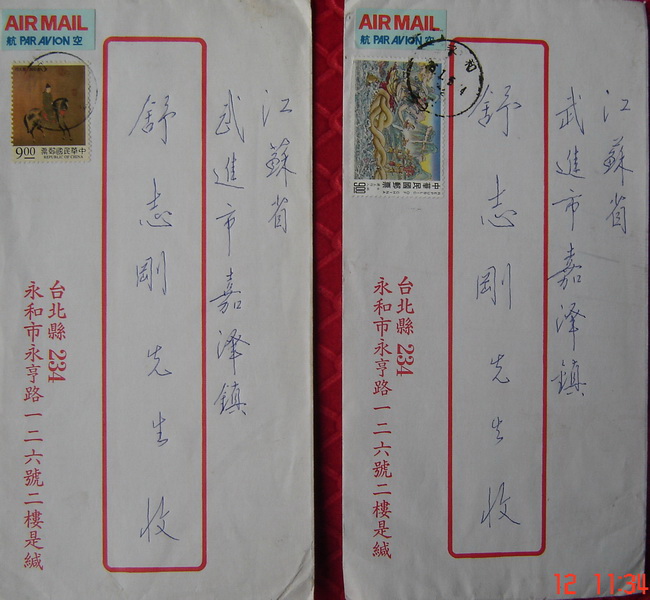 AIR MAIL
航 PAR AVION 空
9.00 票郵國民華中
REPUBLIC OF CHINA
江蘇省
武進市嘉澤鎮
舒志剛先生收
台北縣 234
永和市永亨路一二六號二樓是緘
AIR MAIL
航 PAR AVION 空
中華民國郵票
900
江蘇省
武進市嘉澤鎮
舒志剛先生收
台北縣 234
永和市永亨路一二六號二樓是緘
12 11:34